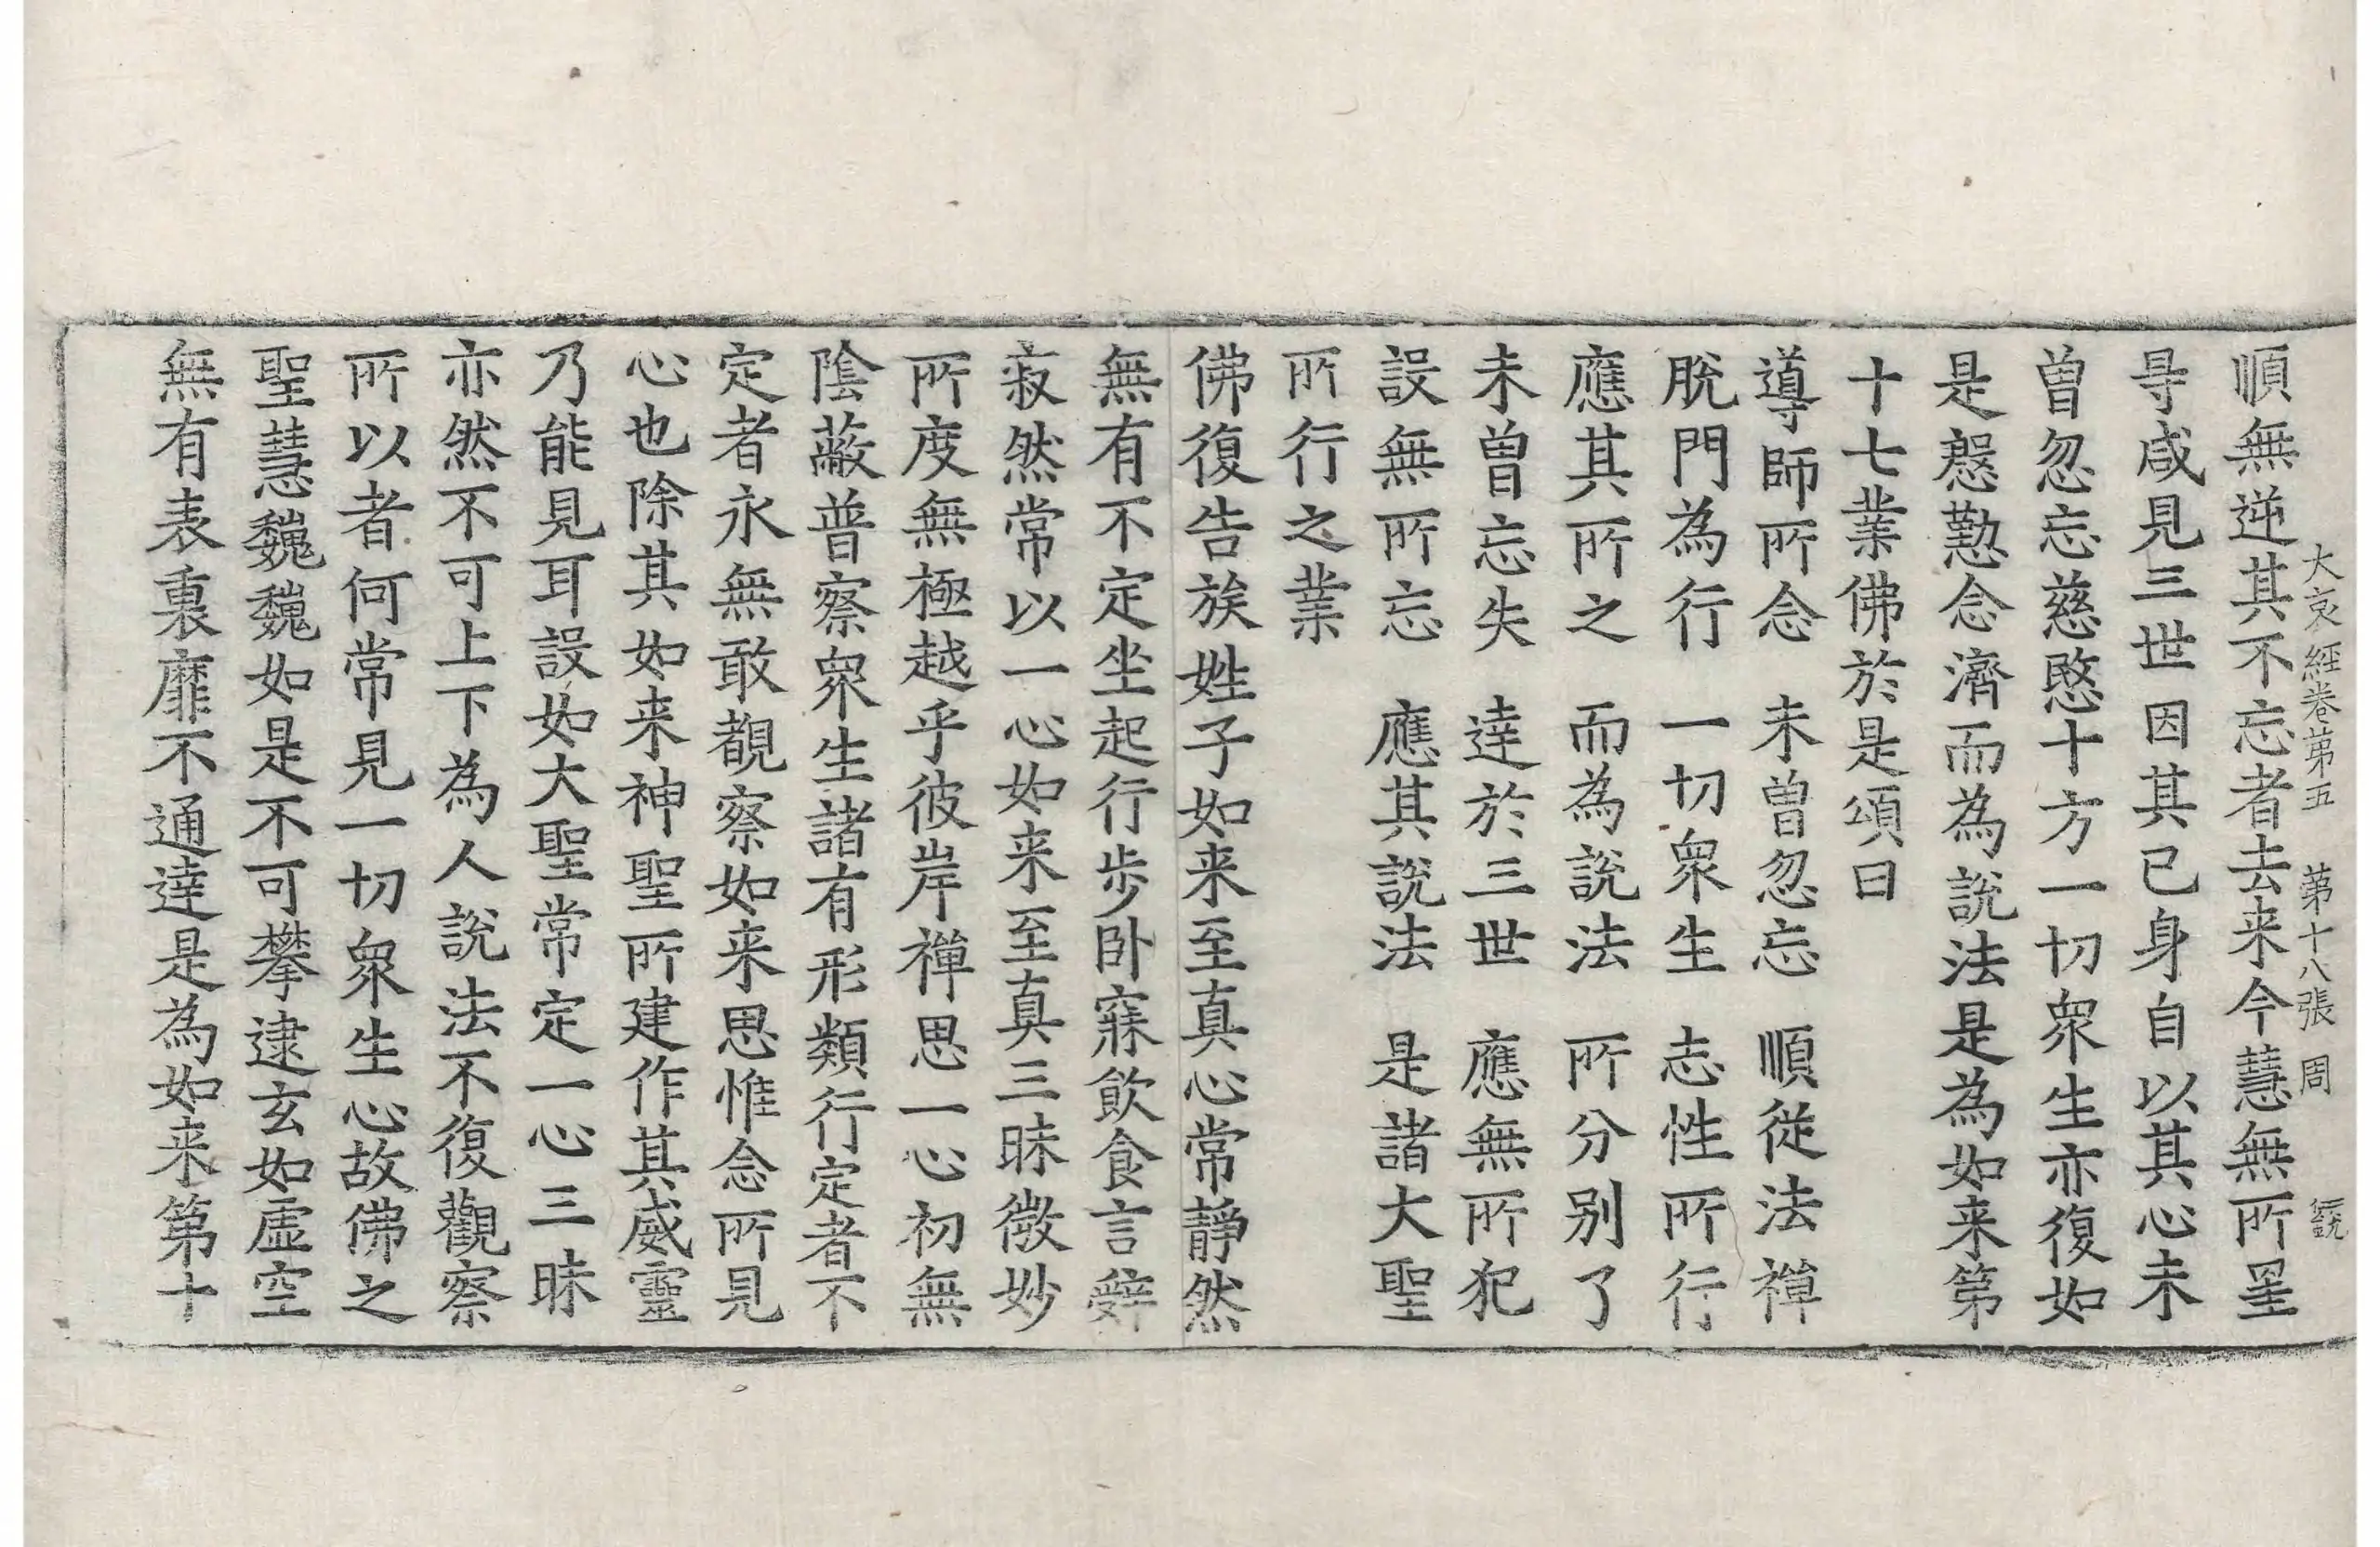 大哀經卷第五　第十八張　周
順無逆其不忘者去来今慧無所罣
㝵咸見三世因其己身自以其心未
曾忽忘慈愍十方一切衆生亦復如
是慇懃念濟而為說法是為如来第
十七業佛於是頌曰
導師所念　未曾忽忘　順從法禪
脫門為行　一切衆生　志性所行
應其所之　而為說法　所分別了
未曾忘失　達於三世　應無所犯
設無所忘　應其說法　是諸大聖
所行之業
佛復告族姓子如来至真心常靜然
無有不定坐起行步卧寐飲食言辝
寂然常以一心如来至真三昧微妙
所度無極越乎彼岸禪思一心初無
陰蔽普察衆生諸有形類行定者不
定者永無敢覩察如来思惟念所見
心也除其如来神聖所建作其威靈
乃能見耳設如大聖常定一心三昧
亦然不可上下為人說法不復觀察
所以者何常見一切衆生心故佛之
聖慧巍巍如是不可攀逮玄如虛空
無有表裏靡不通達是為如来第十